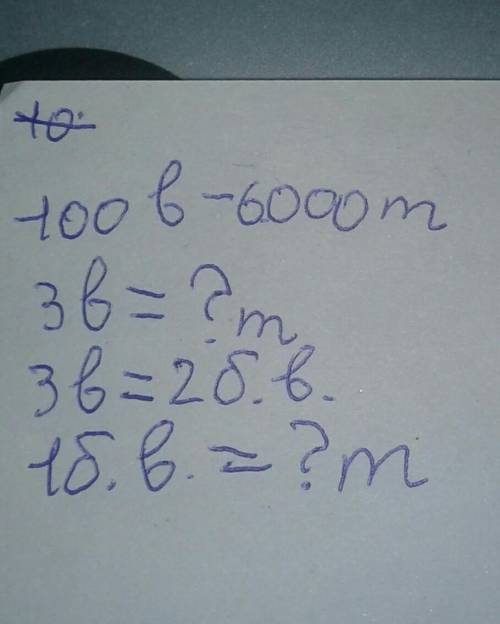 10.
100 в - 6000 т
3 в = ? т
3 в = 2 б. в.
1 б. в. = ? т